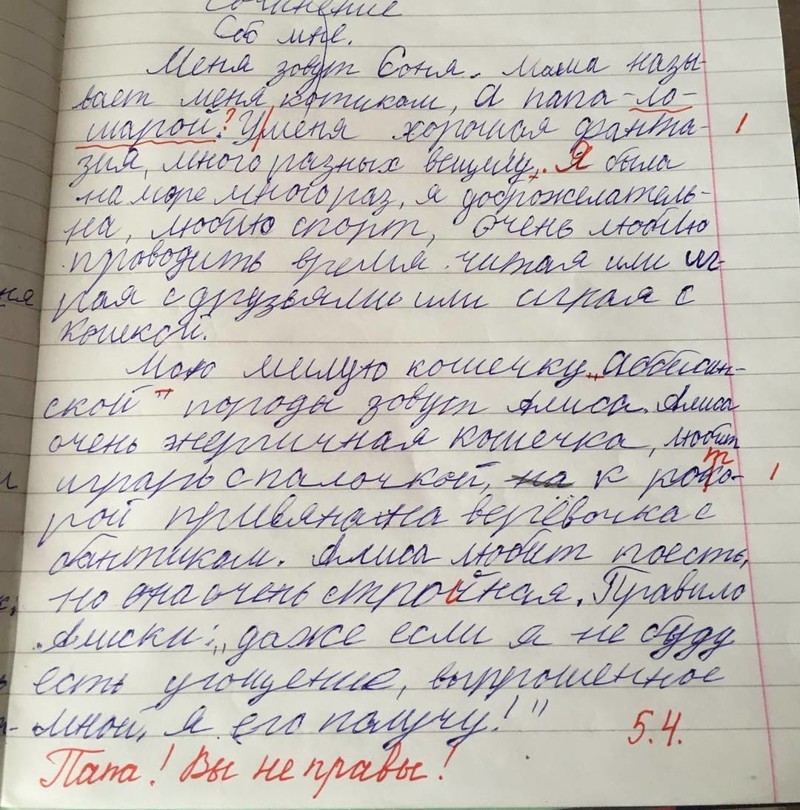 Сочинение
Соб мне.
Меня зовут Соня. Мама назы-
вает меня котиком, А папа - ло-
шарой? У меня хорошая фанта-
зия, много разных вещичу. Я была
на море много раз, я доброжелатель-
на, люблю спорт, очень люблю
проводить время читая или иг-
рая с друзьями или играя с
кошкой.
Мою милую кошечку „Аббисин-
ской" породы зовут Алиса. Алиса
очень энергичная кошечка, любит
играть с палочкой, на к кото-
рой привязана верёвочка с
бантиком. Алиса любит поесть,
но она очень стройная. Правило
Алиски: „даже если я не буду
есть угощение, выпрошенное
мной, я его получу!"
5.4.
Папа! Вы не правы!